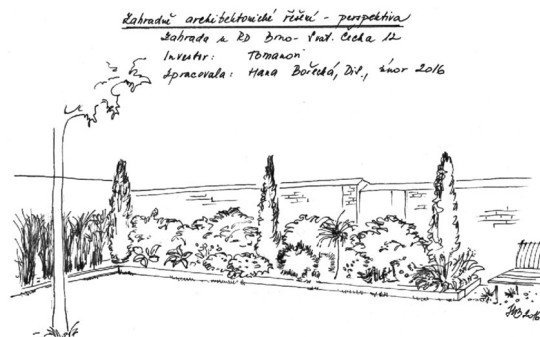 Zahradně architektonické řešení - perspektiva
Zahrada u RD Brno - Svat. Čecha 12
Investor: Tomanovi
Zpracovala: Hana Bořecká, DiS., únor 2016
HB 2016